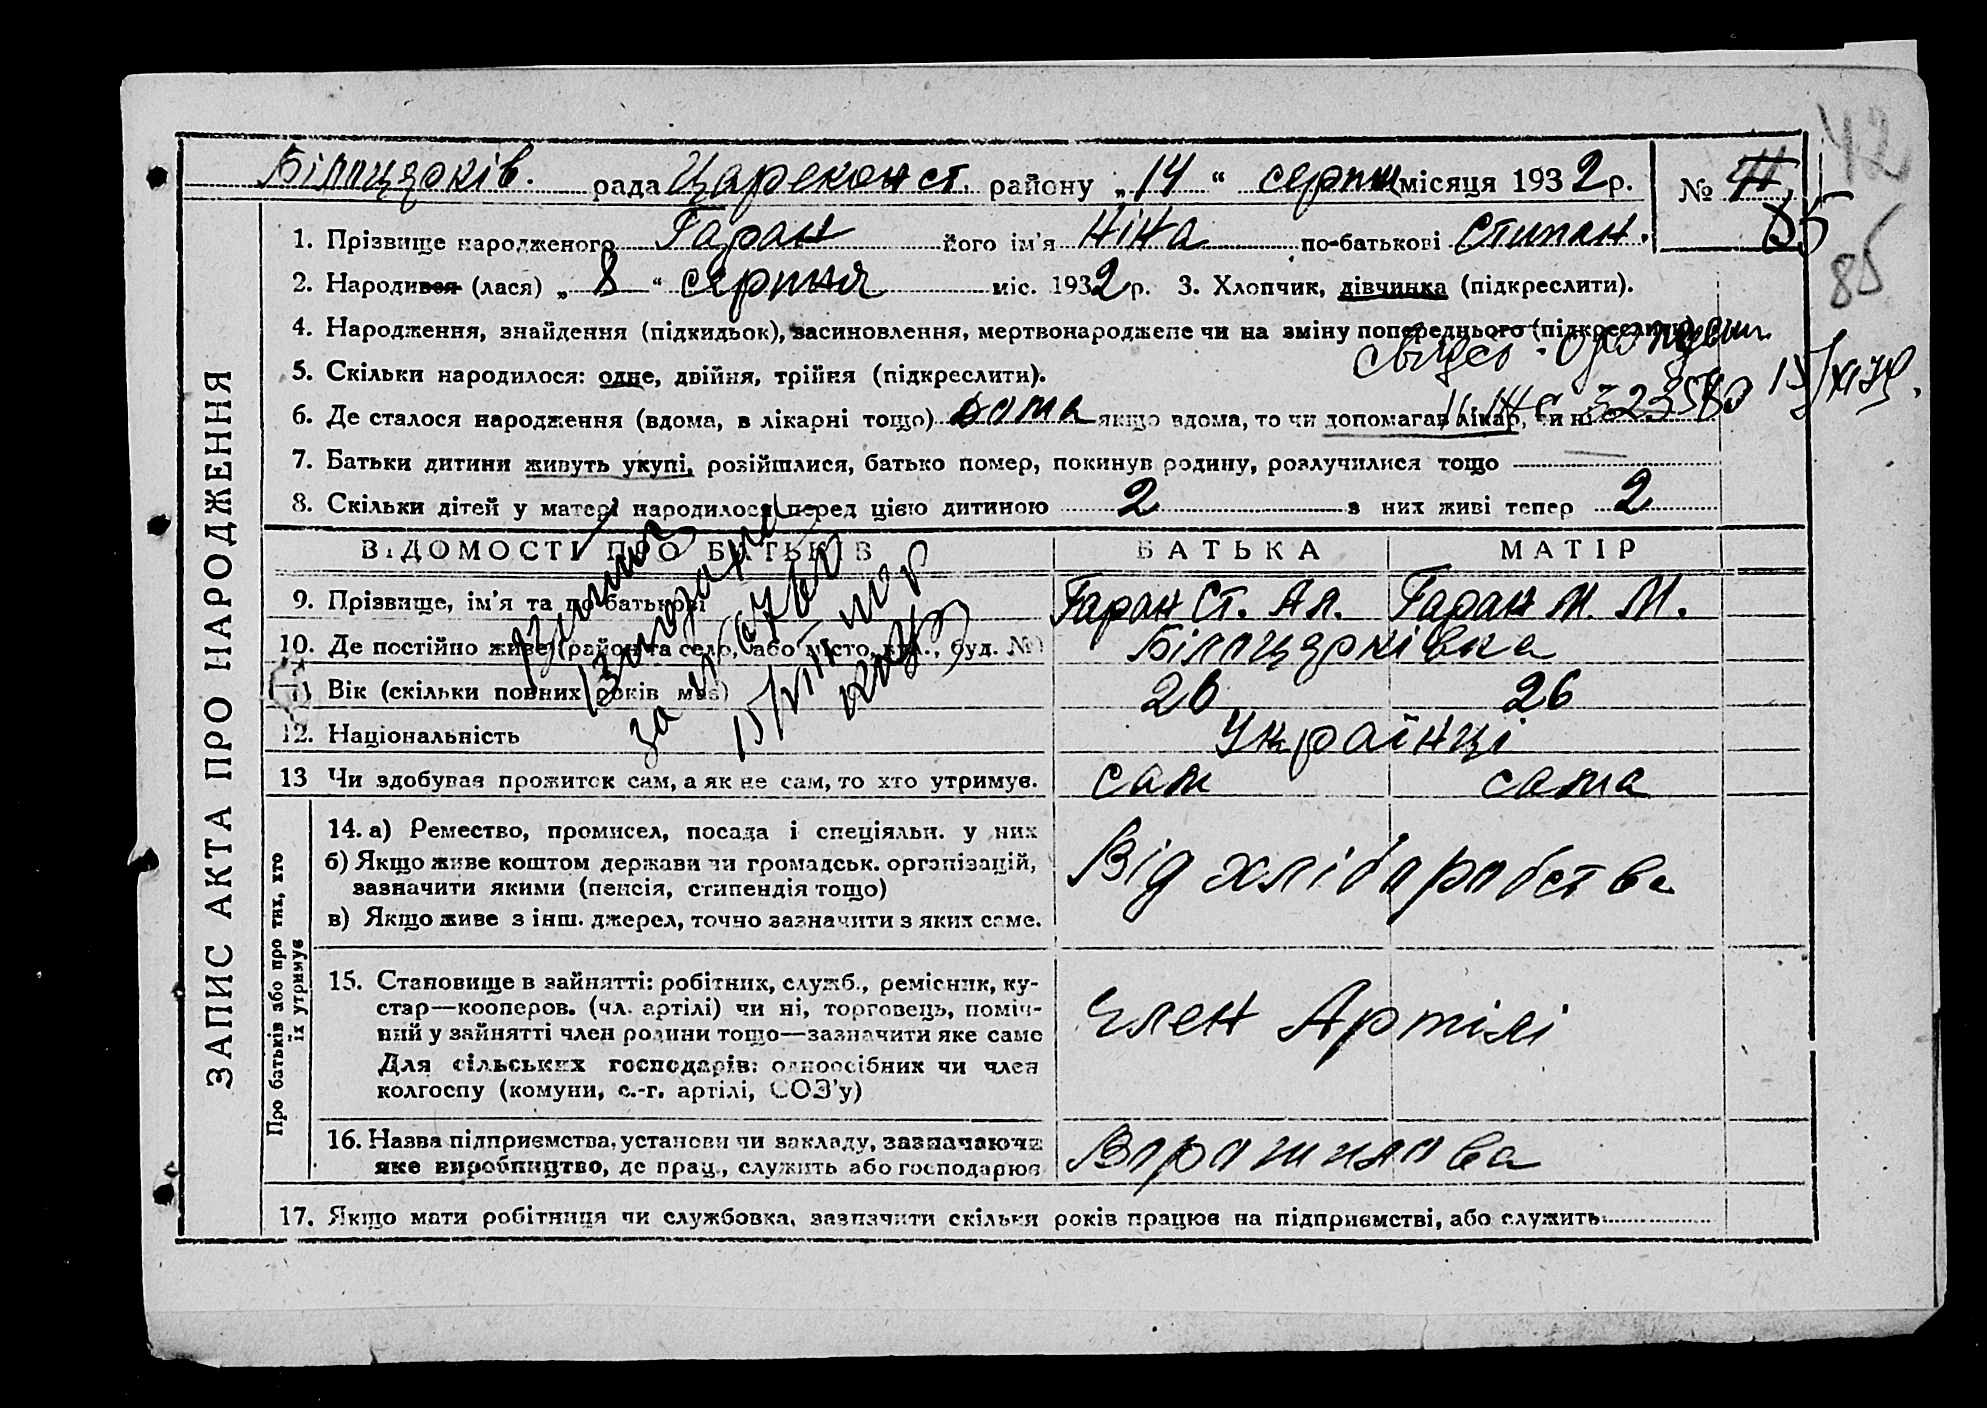 42
Білоцерків. рада Цареконст. району „ 14 “ серпня місяця 1932 р. № 41
85
85
1. Прізвище народженого Гаран його ім'я Ніна по-батькові Степан.
2. Народився (лася) „ 8 “ серпня міс. 1932 р. 3. Хлопчик, дівчинка (підкреслити).
4. Народження, знайдення (підкидьок), засиновлення, мертвонароджене чи на зміну попереднього (підкреслити)
5. Скільки народилося: одне, двійня, трійня (підкреслити).
6. Де сталося народження (вдома, в лікарні тощо) дома якщо вдома, то чи допомагав лікар, чи ні
7. Батьки дитини живуть укупі, розійшлися, батько помер, покинув родину, розлучилися тощо
8. Скільки дітей у матері народилося перед цією дитиною 2 з них живі тепер 2
ВІДОМОСТІ ПРО БАТЬКІВ БАТЬКА МАТІР
9. Прізвище, ім'я та по-батькові Гаран Ст. Ал. Гаран М. М.
10. Де постійно живе (район та село, або місто, вул., буд. №) Білоцерківка
11. Вік (скільки повних років має) 26 26
12. Національність Українці
13 Чи здобував прожиток сам, а як не сам, то хто утримує. сам сама
14. а) Ремество, промисел, посада і спеціяльн. у них
б) Якщо живе коштом держави чи громадськ. організацій,
зазначити якими (пенсія, стипендія тощо) Від хліборобства
в) Якщо живе з інш. джерел, точно зазначити з яких саме.
15. Становище в зайнятті: робітник, служб., ремісник, ку-
стар—кооперов. (чл. артілі) чи ні, торговець, поміч-
ний у зайнятті член родини тощо—зазначити яке саме Член Артілі
Для сільських господарів: одноосібник чи член
колгоспу (комуни, с.-г. артілі, СОЗ'у)
16. Назва підприємства, установи чи закладу, зазначаючи
яке виробництво, де прац., служить або господарює Ворошилова
17. Якщо мати робітниця чи службовка, зазначити скільки років працює на підприємстві, або служить
ЗАПИС АКТА ПРО НАРОДЖЕННЯ
Про батьків або про тих, хто
їх утримує